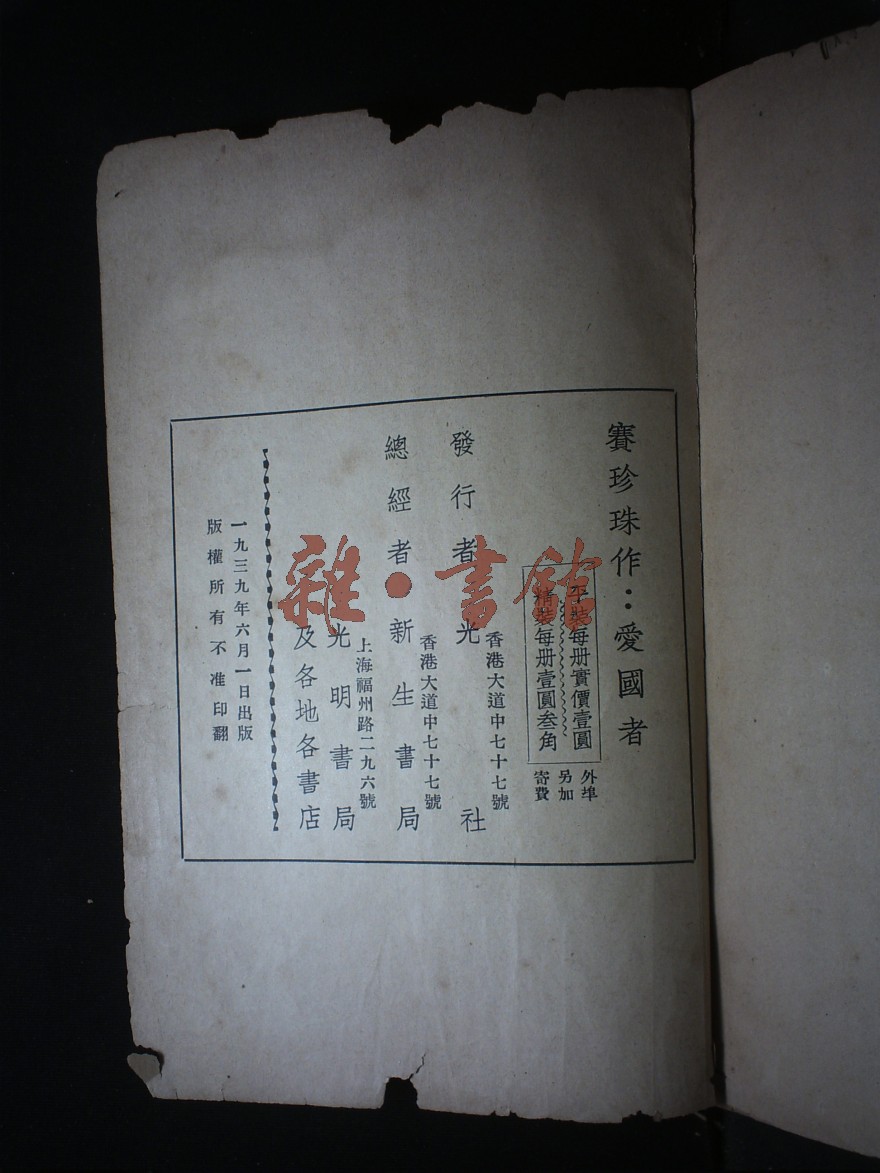 賽珍珠作：愛國者
平裝每册實價壹圓
精裝每册壹圓叁角
外埠
另加
寄費
發行者
香港大道中七十七號
光社
總經者
香港大道中七十七號
新生書局
上海福州路二九六號
光明書局
及各地各書店
一九三九年六月一日出版
版權所有不准印翻
雜·書館